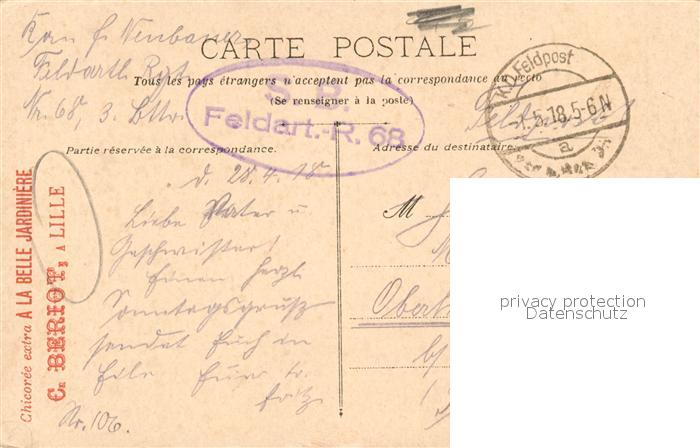 Kan. F. Neubauer
Feldartl. Rgt.
Nr. 68, 3. Battr.
CARTE POSTALE
Tous les pays étrangers n'acceptent pas la correspondance au recto
(Se renseigner à la poste)
S. B.
Feldart.-R. 68
K.D. Feldpost
1.5.18.5-6N
a
Partie réservée à la correspondance.
Adresse du destinataire.
d. 28.4.18
Liebe Vater u.
Geschwister!
Einen herzl.
Sonntagsgruss
sendet Euch in
Eile Euer tr.
Fritz
Nr. 106.
M
Chicorée extra A LA BELLE JARDINIÈRE
C. BERIOT, A LILLE
privacy protection
Datenschutz